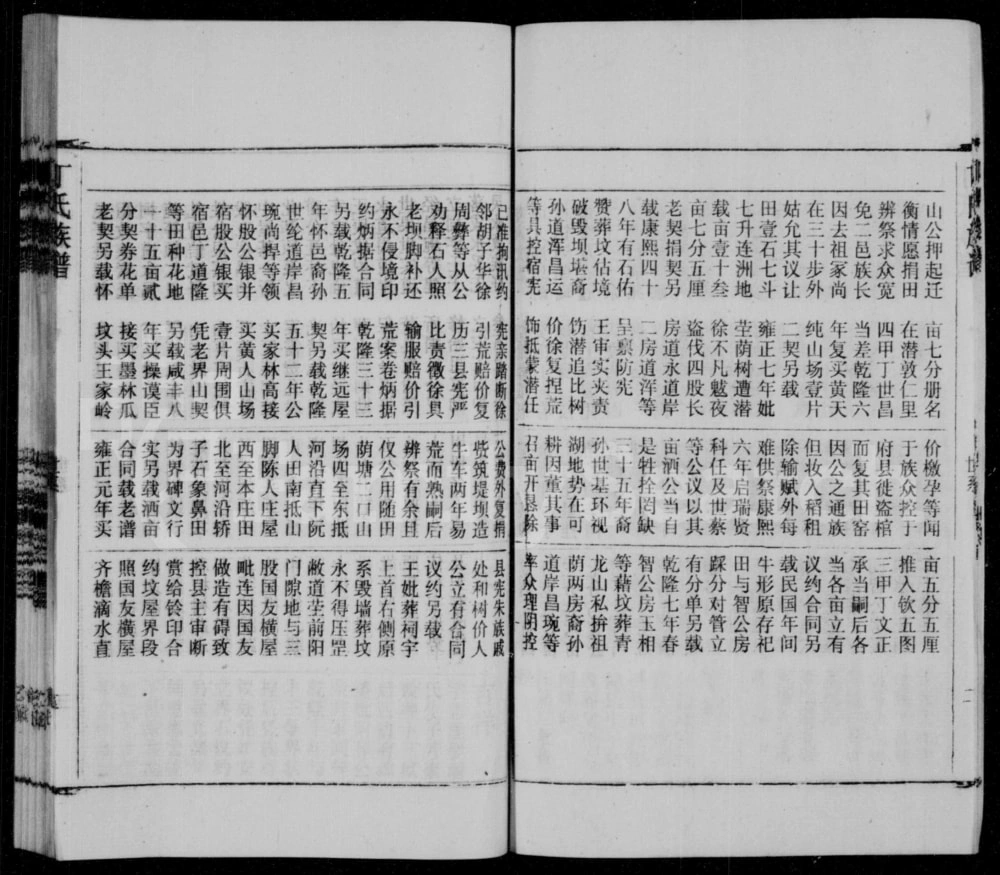 山公押起迁
衡情愿捐田
辨祭求众宽
免二邑族长
因去祖家尚
在三十步外
姑允其议让
田壹石七斗
七升连洲地
载亩壹十叁
亩七分五厘
老契捐契另
载康熙四十
八年有石佑
赞葬坟估境
破毁坝堪裔
孙道浑昌运
等具控宿宪
亩七分册名
在潜敦仁里
四甲丁世昌
当差乾隆六
年复买黄天
纯山场壹片
二契另载
雍正七年妣
茔荫树遭潜
徐不凡魆夜
盗伐四股长
房道永道岸
二房道浑等
呈禀防宪
王审实夹责
饬潜追比树
价徐复捏荒
饰抵蒙潜任
价檄孕等闻
于族众控于
府县徙盗棺
而复其田窑
因公之通族
但妆入稻租
除输赋外每
难供祭康熙
六年启瑞贤
科任及世蔡
等公议以其
亩酒公当自
是牲拴罔缺
三十五年裔
孙世基环视
湖地势在可
耕因董其事
召亩开恳除
亩五分五厘
推入钦五图
三甲丁文正
承当嗣后各
当各亩立有
议约合同另
载民国年间
牛形原存祀
田与智公房
踩分对管立
有分单另载
乾隆七年春
智公房玉相
等藉坟葬青
龙山私拚祖
荫两房裔孙
道岸昌琬等
率众理阴控
已准拘讯约
邻胡子华徐
周彝等从公
劝释石人照
老坝脚补还
永不侵境印
约炳据合同
另载乾隆五
年怀邑裔孙
世纶道岸昌
琬尚捍等领
怀股公银并
宿股公银买
宿邑丁道隆
等田种花地
一十五亩贰
分契券花单
老契另载怀
宪亲踏断徐
引荒赔价复
历三县宪严
比责徵徐具
输服赔价引
荒案卷炳据
乾隆三十三
年买继远屋
契另载乾隆
五十二年公
买家林高接
买黄人山场
壹片周围俱
凭老界山契
另载咸丰八
年买操谟臣
接买墨林瓜
坟头王家岭
公费外复捐
赀筑堤坝造
牛车两年易
荒而熟嗣后
辨祭有余且
仅公用随田
荫塘二口山
场四至东抵
河沿直下阮
人田南抵山
脚陈人庄屋
西至本庄田
北至河沿轿
子石象鼻田
为界碑文行
实另载洒亩
合同载老谱
雍正元年买
县宪朱族戚
处和树价人
公立有合同
议约另载
王妣葬祠宇
上首右侧原
系毁墙葬坟
永不得压罡
敝道茔前阳
门隙地与三
股国友横屋
毗连因国友
做造有碍致
控县主审断
赏给铃印合
约坟屋界段
照国友横屋
齐檐滴水直
丁氏族谱